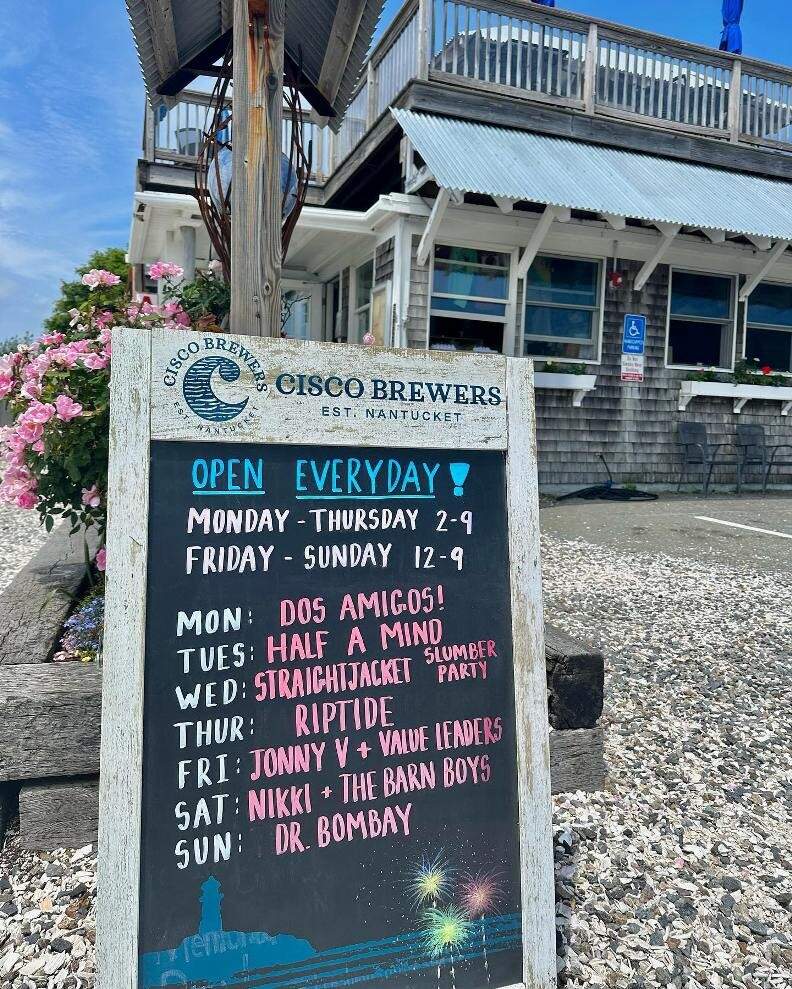 CISCO BREWERS
EST. NANTUCKET
CISCO BREWERS
EST. NANTUCKET
OPEN EVERYDAY!
MONDAY - THURSDAY 2-9
FRIDAY - SUNDAY 12-9
MON: DOS AMIGOS!
TUES: HALF A MIND
WED: STRAIGHTJACKET SLUMBER PARTY
THUR: RIPTIDE
FRI: JONNY V + VALUE LEADERS
SAT: NIKKI + THE BARN BOYS
SUN: DR. BOMBAY